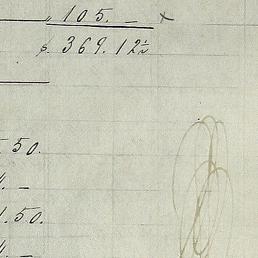 „ 105. — x
$. 369.12½
.50.
„. —
1.50.
„. —